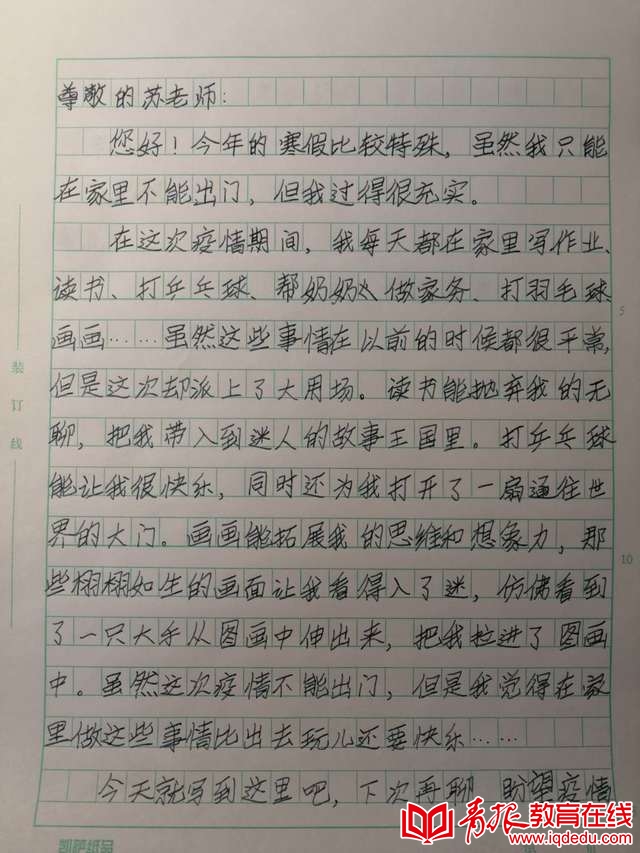 尊敬的苏老师：
您好！今年的寒假比较特殊，虽然我只能
在家里不能出门，但我过得很充实。
在这次疫情期间，我每天都在家里写作业、
读书、打乒乓球、帮奶奶做家务、打羽毛球
画画……虽然这些事情在以前的时候都很平常，
但是这次却派上了大用场。读书能抛弃我的无
聊，把我带入到迷人的故事王国里。打乒乓球
能让我很快乐，同时还为我打开了一扇通往世
界的大门。画画能拓展我的思维和想象力，那
些栩栩如生的画面让我看得入了迷，仿佛看到
了一只大手从图画中伸出来，把我拉进了图画
中。虽然这次疫情不能出门，但是我觉得在家
里做这些事情比出去玩儿还要快乐……
今天就写到这里吧，下次再聊 盼望疫情
装订线
5
10
凯萨纸品
青报教育在线
www.iqdedu.com